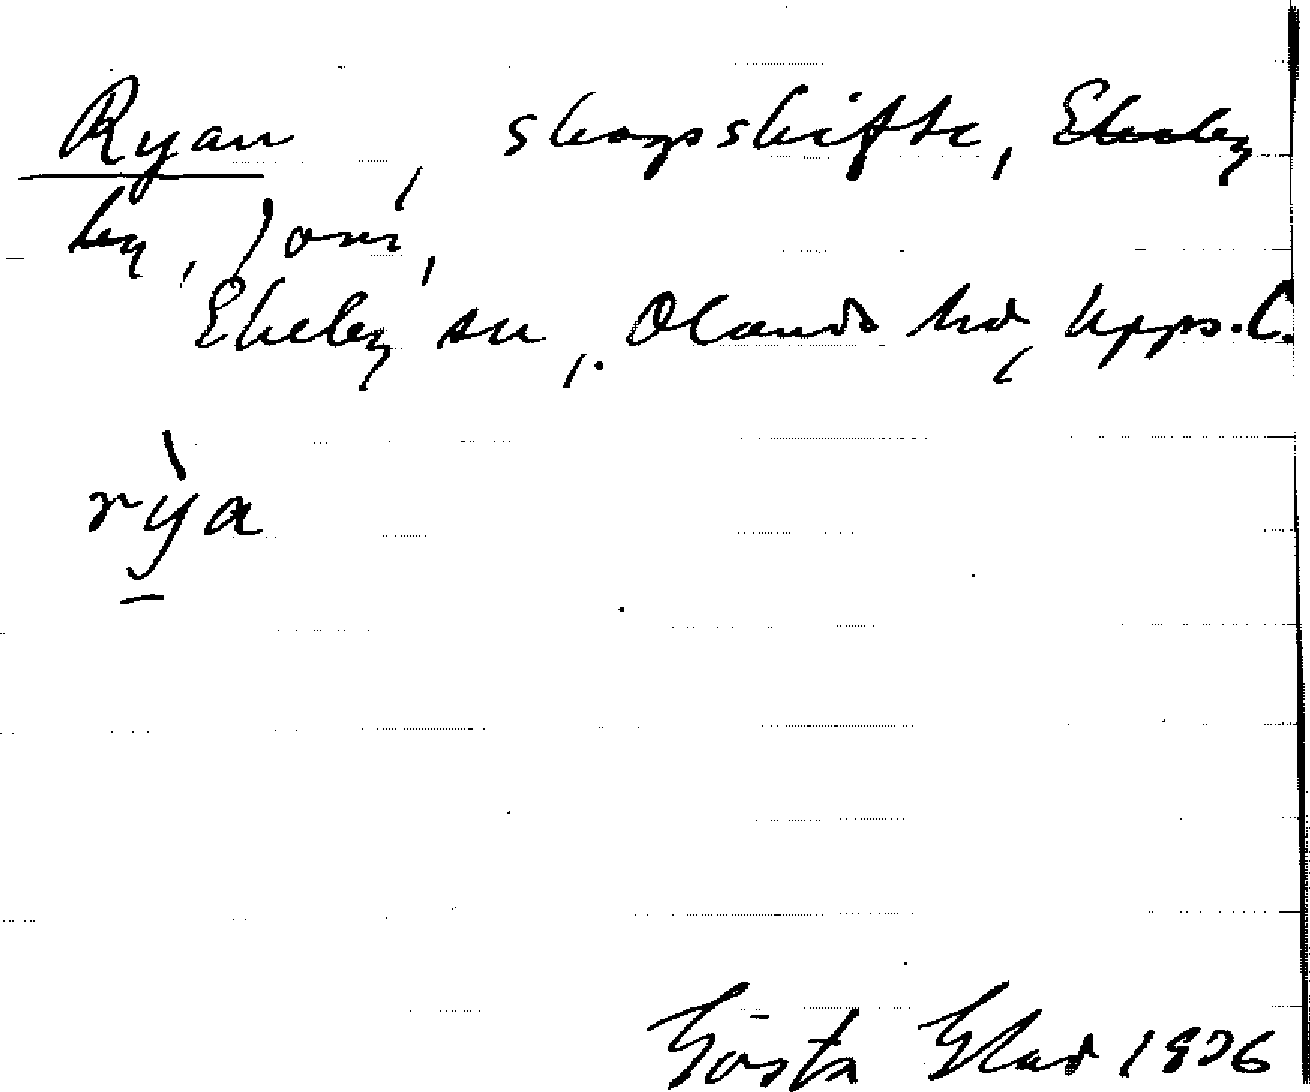 Ryan, skogsskifte, Ekeby
by,
Ekeby sn, Olands hd, Upps. l.
rỳa
Gösta Glad 1936